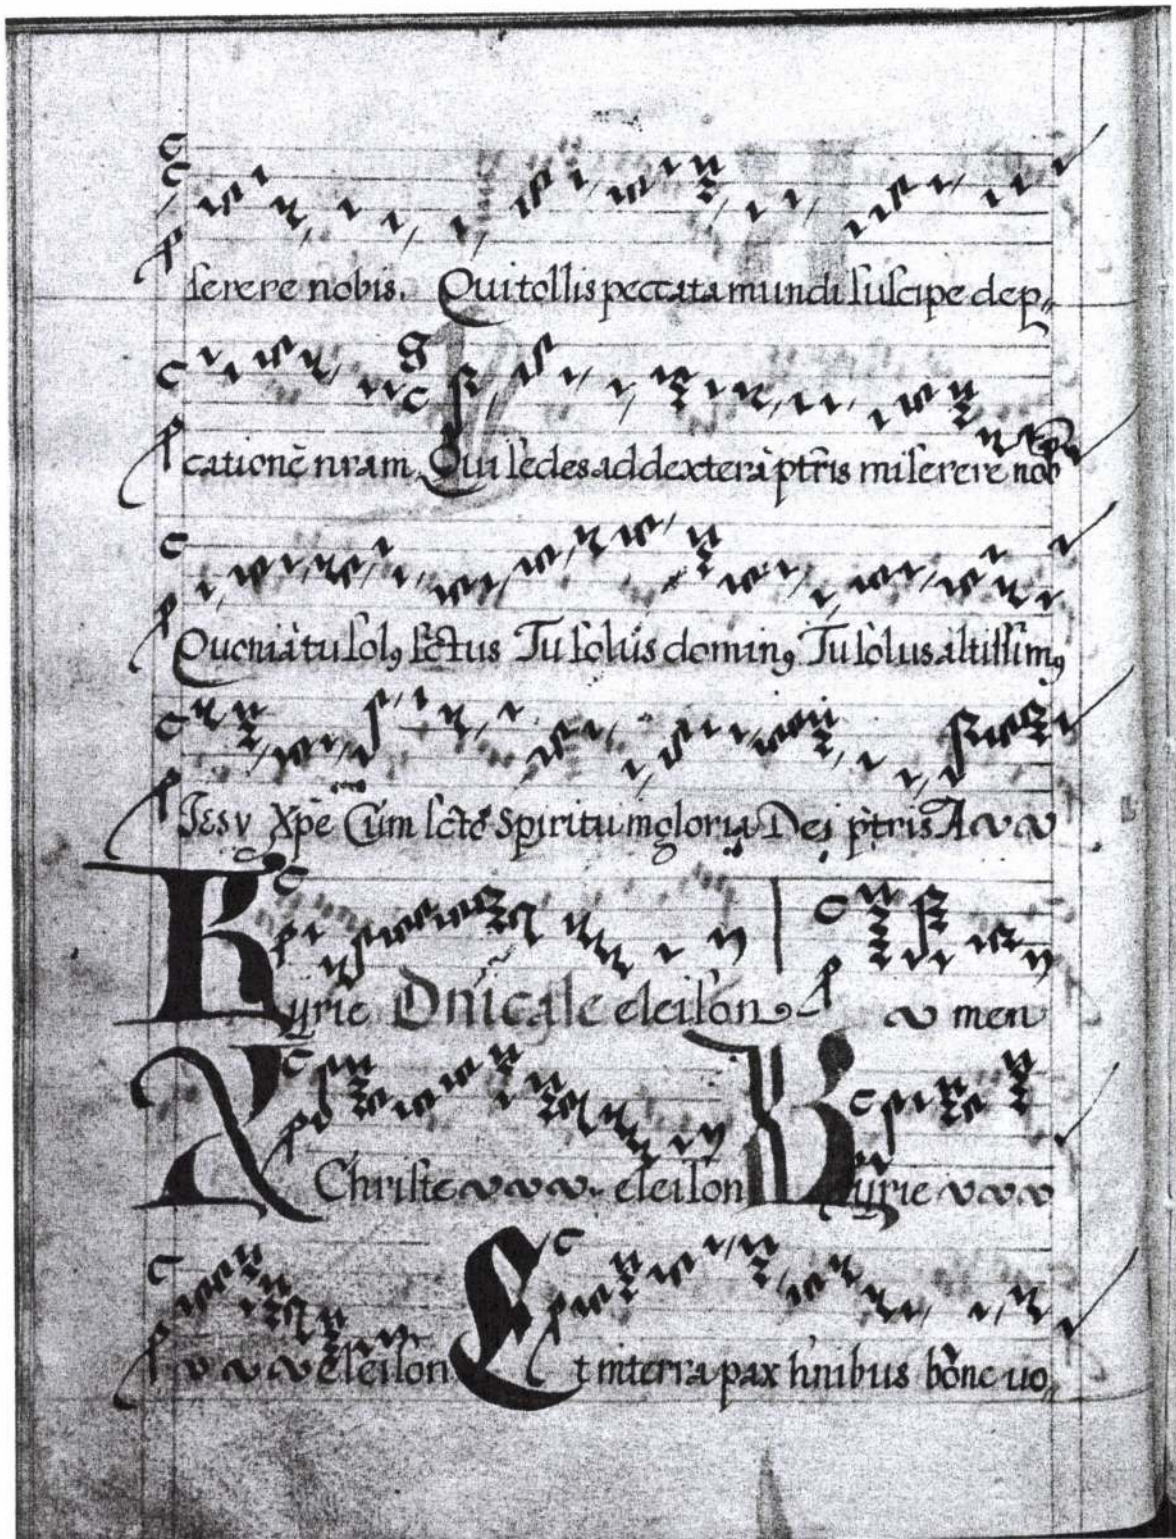 serere nobis. Qui tollis peccata mundi suscipe dep,,
cationē nram Qui sedes ad dexterā ptr̄is miserere nob
Quoniā tu solꝯ sc̄tus Tu solus dominꝯ Tu solus altissimꝯ
Jesv Xpē Cum sc̄tō Spiritu in gloria Dei pt̄ris A
Kyrie Dn̄icale eleison men
Christe eleison Kyrie
eleison Et in terra pax hn̄ibus bōne uo,,